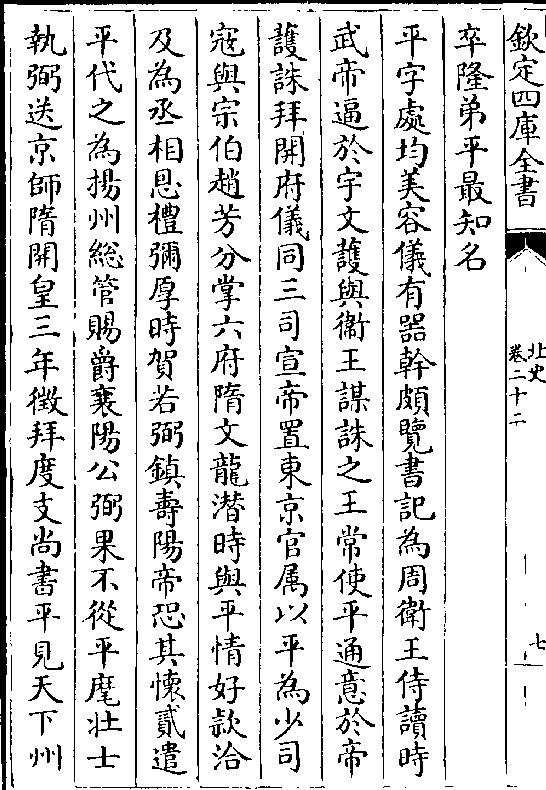 欽定四庫全書
北史
卷二十二
七
卒隆弟平最知名
平字處均美容儀有器幹頗覽書記為周衛王侍讀時
武帝逼於宇文護與衛王謀誅之王常使平通意於帝
護誅拜開府儀同三司宣帝置東京官属以平為少司
寇與宗伯趙芳分掌六府隋文龍潜時與平情好款洽
及為丞相恩禮彌厚時賀若弼鎮壽陽帝恐其懷貳遣
平代之為揚州總管賜爵襄陽公弼果不從平麾壯士
執弼送京師隋開皇三年徵拜度支尚書平見天下州